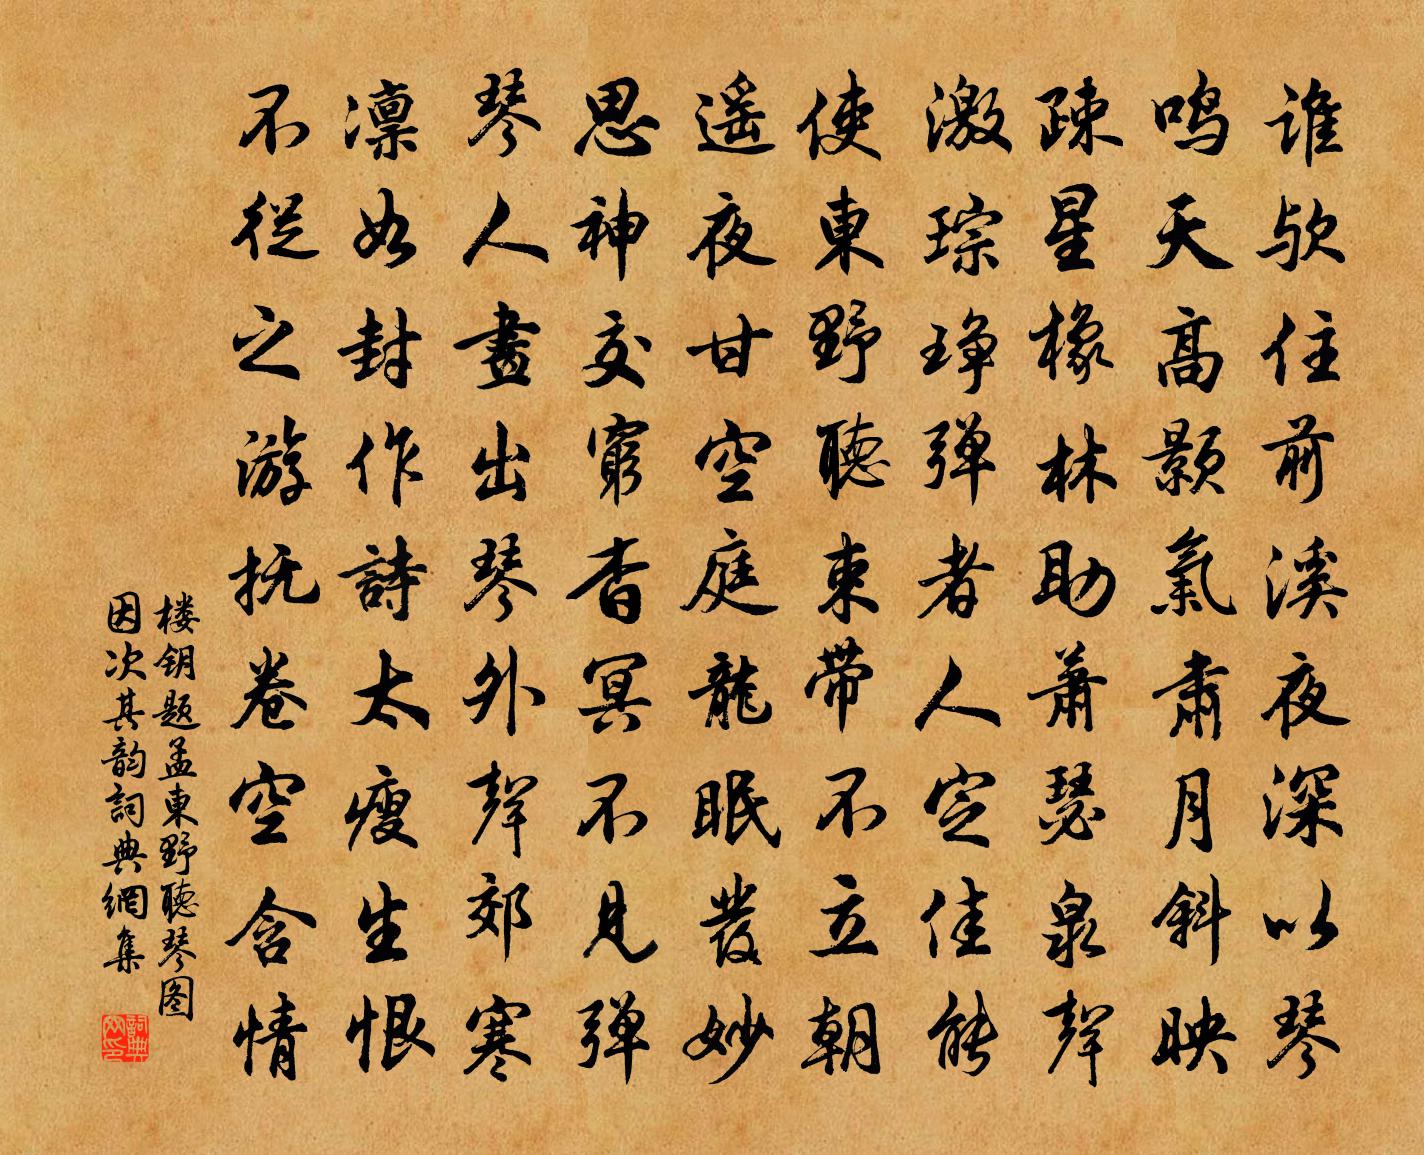 谁欤住前溪夜深以琴
鸣天高颢氣肅月斜映
疎星橡林助蕭瑟泉聲
激琮琤弹者人定佳能
使東野聽束带不立朝
遥夜甘空庭龍眠發妙
思神交窮杳冥不見弹
琴人畫出琴外聲郊寒
凛如封作詩太瘦生恨
不從之游抚卷空含情
楼钥题孟東野聽琴图
因次其韵詞典網集
詞典网印